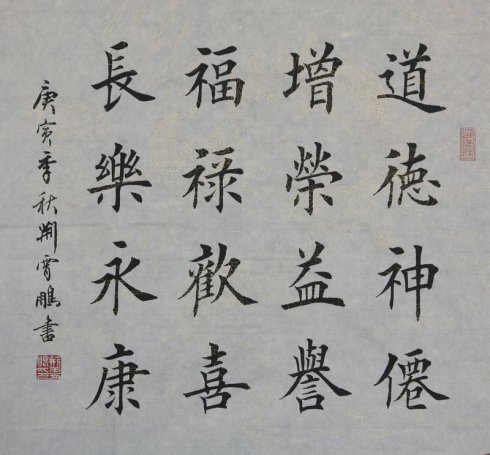 道德神僊
增榮益譽
福祿歡喜
長樂永康
庚寅季秋荆霄鵬書